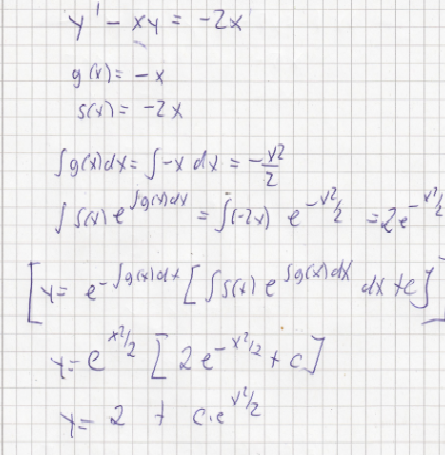 y' - xy = -2x
g(x) = -x
s(x) = -2x
∫g(x)dx = ∫-x dx = -x²/2
∫s(x) e^∫g(x)dx = ∫(-2x) e^-x²/2 = 2e^-x²/2
[y = e^-∫g(x)dx [∫s(x) e^∫g(x)dx dx + c]]
y = e^x²/2 [2e^-x²/2 + c]
y = 2 + c·e^x²/2